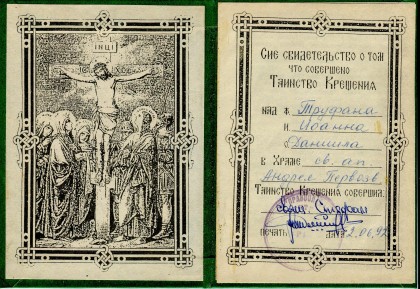 ІНЦІ
Сие свидетельство о том
что совершено
Таинство Крещения
над
и Иоанна
Даниила
в Храме св. ап.
Андрея Первозв.
Таинство Крещения совершил
свящ. Стефан
печать дата 2.06.92